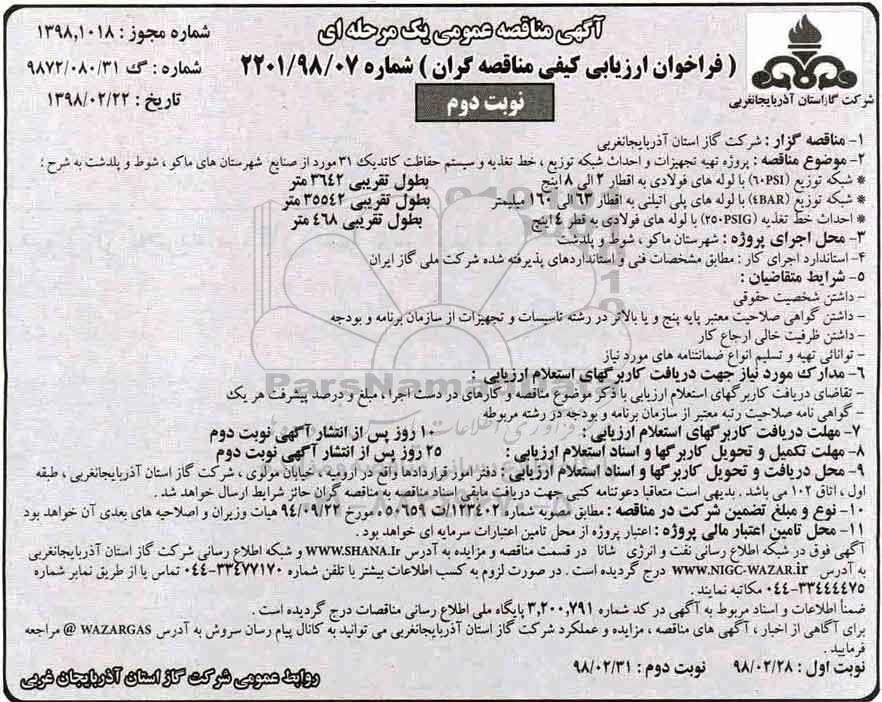 آگهی مناقصه عمومی یک مرحله ای
( فراخوان ارزیابی کیفی مناقصه گران ) شماره ۲۲۰۱/۹۸/۰۷
نوبت دوم
شماره مجوز : ۱۳۹۸,۱۰۱۸
شماره : گ ۹۸۷۲/۰۸۰/۳۱
تاریخ : ۱۳۹۸/۰۲/۲۲
شرکت گازاستان آذربایجانغربی
۱- مناقصه گزار : شرکت گاز استان آذربایجانغربی
۲- موضوع مناقصه : پروژه تهیه تجهیزات و احداث شبکه توزیع ، خط تغذیه و سیستم حفاظت کاتدیک ۳۱ مورد از صنایع شهرستان های ماکو ، شوط و پلدشت به شرح :
* شبکه توزیع (۶۰PSI) با لوله های فولادی به اقطار ۲ الی ۸ اینچ بطول تقریبی ۳۶۴۲ متر
* شبکه توزیع (۴BAR) با لوله های پلی اتیلنی به اقطار ۶۳ الی ۱۶۰ میلیمتر بطول تقریبی ۳۵۵۴۲ متر
* احداث خط تغذیه (۲۵۰PSIG) با لوله های فولادی به قطر ۴ اینچ بطول تقریبی ۴۶۸ متر
۳- محل اجرای پروژه : شهرستان ماکو ، شوط و پلدشت
۴- استاندارد اجرای کار : مطابق مشخصات فنی و استانداردهای پذیرفته شده شرکت ملی گاز ایران
۵- شرایط متقاضیان :
- داشتن شخصیت حقوقی
- داشتن گواهی صلاحیت معتبر پایه پنج و یا بالاتر در رشته تاسیسات و تجهیزات از سازمان برنامه و بودجه
- داشتن ظرفیت خالی ارجاع کار
- توانائی تهیه و تسلیم انواع ضمانتنامه های مورد نیاز
۶- مدارک مورد نیاز جهت دریافت کاربرگهای استعلام ارزیابی :
- تقاضای دریافت کاربرگهای استعلام ارزیابی با ذکر موضوع مناقصه و کارهای در دست اجرا ، مبلغ و درصد پیشرفت هر یک
- گواهی نامه صلاحیت رتبه معتبر از سازمان برنامه و بودجه در رشته مربوطه
۷- مهلت دریافت کاربرگهای استعلام ارزیابی : ۱۰ روز پس از انتشار آگهی نوبت دوم
۸- مهلت تکمیل و تحویل کاربرگها و اسناد استعلام ارزیابی : ۲۵ روز پس از انتشار آگهی نوبت دوم
۹- محل دریافت و تحویل کاربرگها و اسناد استعلام ارزیابی : دفتر امور قراردادها واقع در ارومیه ، خیابان مولوی ، شرکت گاز استان آذربایجانغربی ، طبقه
اول ، اتاق ۱۰۲ می باشد . بدیهی است متعاقبا دعوتنامه کتبی جهت دریافت مابقی اسناد مناقصه به مناقصه گران حائز شرایط ارسال خواهد شد .
۱۰- نوع و مبلغ تضمین شرکت در مناقصه : مطابق مصوبه شماره ۱۲۳۴۰۲/ت ۵۰۶۵۹ ، مورخ ۹۴/۰۹/۲۲ هیات وزیران و اصلاحیه های بعدی آن خواهد بود
۱۱- محل تامین اعتبار مالی پروژه : اعتبار پروژه از محل تامین اعتبارات سرمایه ای خواهد بود .
آگهی فوق در شبکه اطلاع رسانی نفت و انرژی شانا در قسمت مناقصه و مزایده به آدرس WWW.SHANA.Ir و شبکه اطلاع رسانی شرکت گاز استان آذربایجانغربی
به آدرس WWW.NIGC-WAZAR.ir درج گردیده است . در صورت لزوم به کسب اطلاعات بیشتر با تلفن شماره ۳۳۴۷۷۱۷۰-۰۴۴ تماس یا از طریق نمابر شماره
۳۳۴۴۴۴۷۵-۰۴۴ مکاتبه نمایند .
ضمناً اطلاعات و اسناد مربوط به آگهی در کد شماره ۳,۲۰۰,۷۹۱ پایگاه ملی اطلاع رسانی مناقصات درج گردیده است .
برای آگاهی از اخبار ، آگهی های مناقصه ، مزایده و عملکرد شرکت گاز استان آذربایجانغربی می توانید به کانال پیام رسان سروش به آدرس WAZARGAS @ مراجعه
فرمایید .
نوبت اول : ۹۸/۰۲/۲۸ نوبت دوم : ۹۸/۰۲/۳۱
روابط عمومی شرکت گاز استان آذربایجان غربی
ParsNamadData